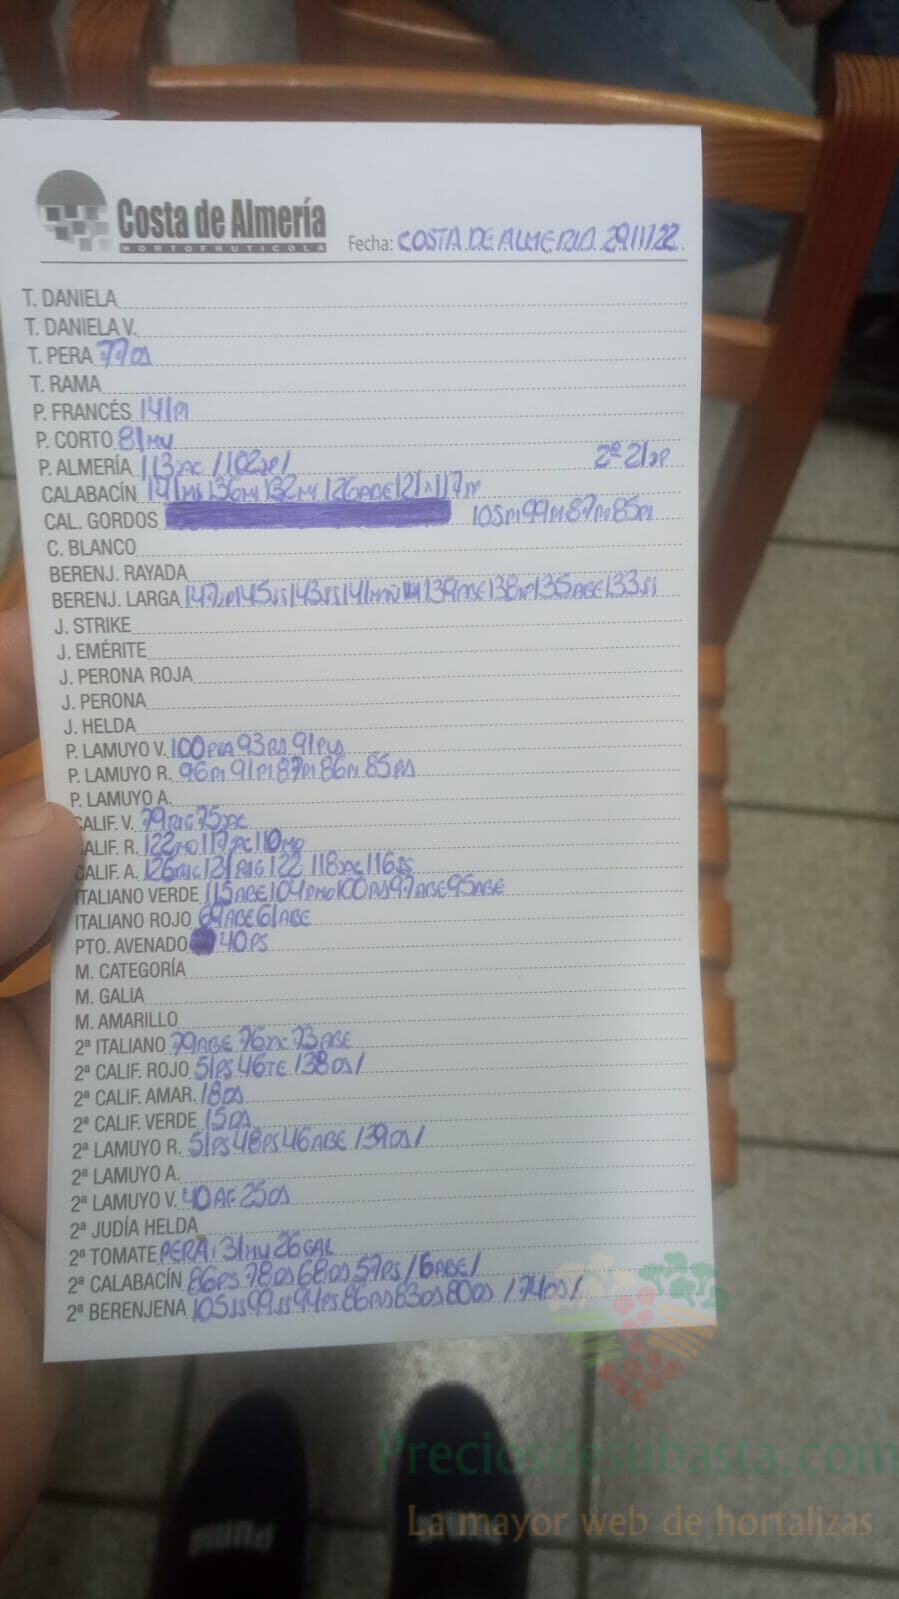 Costa de Almería
HORTOFRUTICOLA
Fecha: COSTA DE ALMERIA 29/11/22
T. DANIELA
T. DANIELA V.
T. PERA 77DS
T. RAMA
P. FRANCÉS 141PI
P. CORTO 81MU
P. ALMERÍA 113JC /102JP/ 2ª 21JP
CALABACÍN 141MS 136MI 132MY 126ABE 121 117JP
CAL. GORDOS 105PI 99PI 87PI 85PI
C. BLANCO
BERENJ. RAYADA
BERENJ. LARGA 147JP 145SS 143SS 141MD 139ABE 138JP 135ABE 133SS
J. STRIKE
J. EMÉRITE
J. PERONA ROJA
J. PERONA
J. HELDA
P. LAMUYO V. 100PVA 93PS 91PVS
P. LAMUYO R. 96PI 91PI 87PI 86PI 85PS
P. LAMUYO A.
CALIF. V. 79RIG 75JC
CALIF. R. 122MO 117JC 110MO
CALIF. A. 126RIG 121RIG 122 118JC 116SS
ITALIANO VERDE 115ABE 104PMO 100PS 97ABE 95ABE
ITALIANO ROJO 69ABE 61ABE
PTO. AVENADO 40PS
M. CATEGORÍA
M. GALIA
M. AMARILLO
2ª ITALIANO 79ABE 76JC 73ABE
2ª CALIF. ROJO 51PS 46TE /38DS/
2ª CALIF. AMAR. 18DS
2ª CALIF. VERDE 15DS
2ª LAMUYO R. 51PS 48PS 46ABE /39DS/
2ª LAMUYO A.
2ª LAMUYO V. 40AG 25DS
2ª JUDÍA HELDA
2ª TOMATE PERA: 31MU 26GAL
2ª CALABACÍN 86PS 78DS 68DS 57PS /6ABE/
2ª BERENJENA 105SS 99SS 94PS 86PS 83DS 80DS /74DS/
Preciosdesubasta.com
La mayor web de hortalizas
PUMA